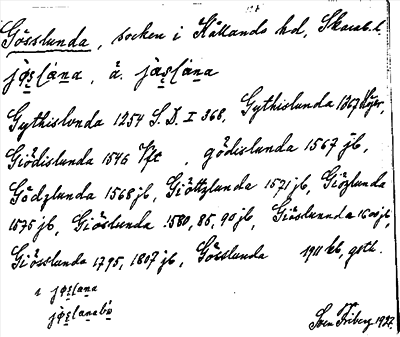 Gösslunda, socken i Kållands hd, Skarab. l.
jǿslána, ä. jäslána
Gythislonda 1254 S.D. I 368, Gythislunda 1367
Giödislunda 1546, gödislunda 1567 jb,
Gödzlunda 1568 jb, Giöttzlunda 1571 jb, Giözlunda
1575 jb, Giöslunda 1580, 85, 90 jb, Giöslunnda 1600 jb,
Giösslunda 1795, 1807 jb, Gösslunda 1911 kb, gotl.
i jøslana
jøslanabo
Sven Friberg 1927.